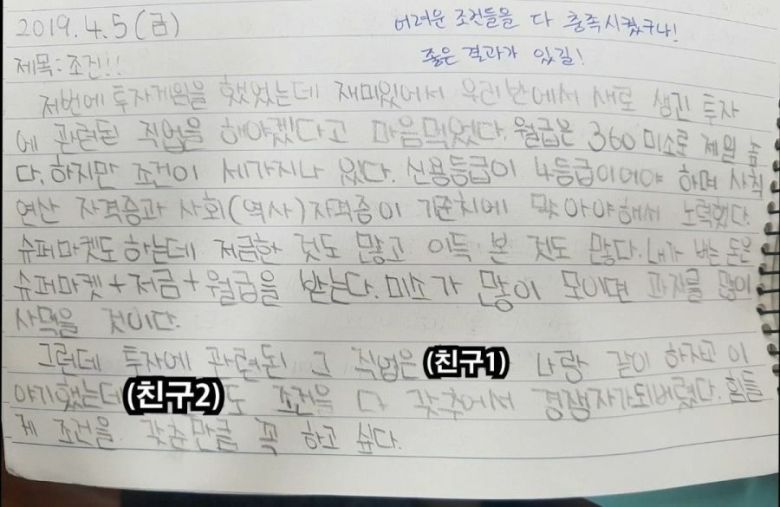 2019.4.5(금)
어려운 조건들을 다 충족시켰구나!
좋은 결과가 있길!
제목:조건!!
저번에 투자게임을 했었는데 재미있어서 우리반에서 새로 생긴 투자
에 관련된 직업을 해야겠다고 마음먹었다. 월급은 360미소로 제일 높
다. 하지만 조건이 세가지나 있다. 신용등급이 4등급이어야 하며 사칙
연산 자격증과 사회(역사)자격증이 기준치에 맞아야해서 노력했다.
슈퍼마켓도 하는데 저금한 것도 많고 이득 본 것도 많다. 내가 버는 돈은
슈퍼마켓+저금+월급을 받는다. 미소가 많이 모이면 과자를 많이
사먹을 것이다.
그런데 투자에 관련된 그 직업은 (친구1) 나랑 같이 하자고 이
야기했는데 (친구2)도 조건을 다 갖추어서 경쟁자가되버렸다. 힘들
제 조건을 갖춘만큼 꼭 하고 싶다.